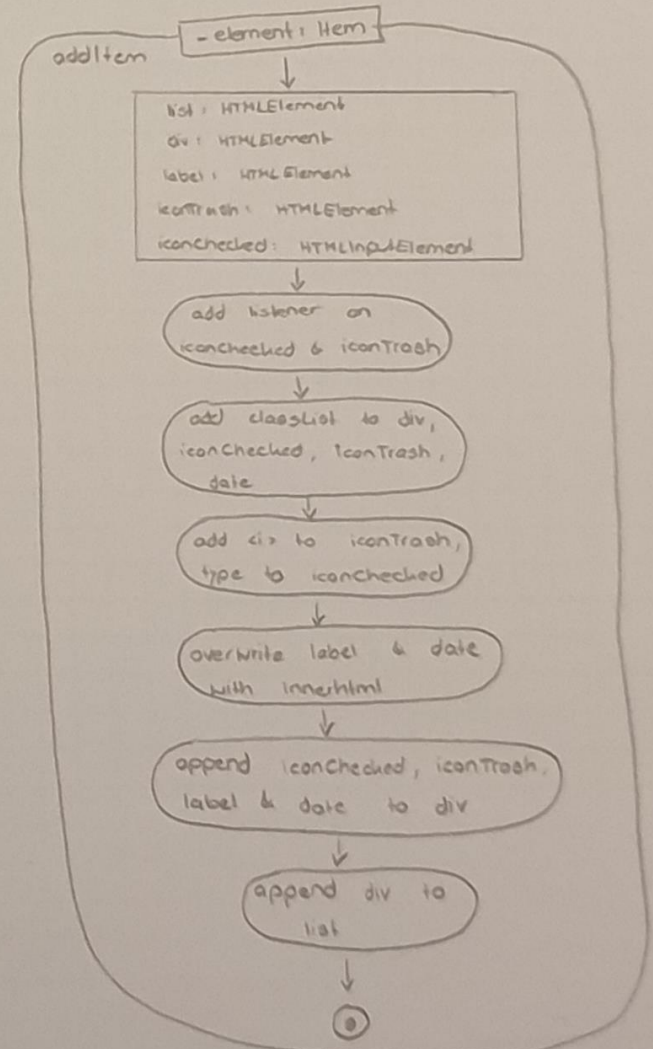 - element: Item
addItem
list: HTMLElement
div: HTMLElement
label: HTMLElement
iconTrash: HTMLElement
iconChecked: HTMLInputElement
add listener on
iconChecked & iconTrash
add classList to div,
iconChecked, IconTrash,
date
add <i> to iconTrash,
type to iconChecked
overwrite label & date
with innerhtml
append iconChecked, iconTrash,
label & date to div
append div to
list